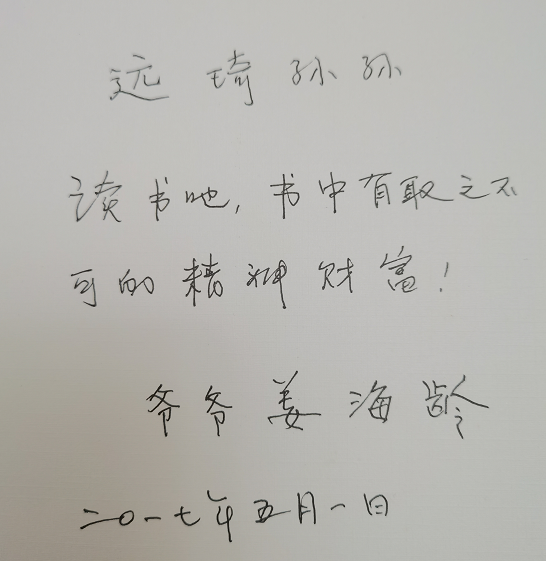 远琦孙孙
读书吧，书中有取之不
可的精神财富！
爷爷 姜海龄
二〇一七年五月一日